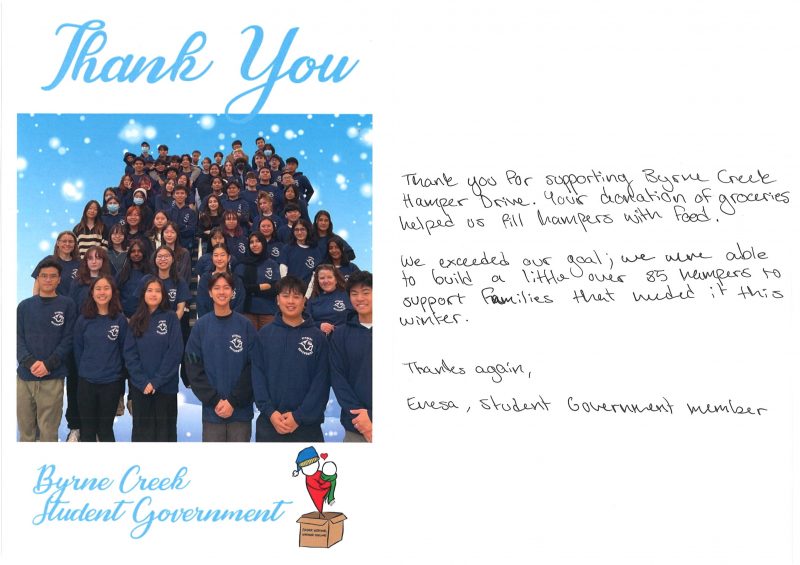 Thank You
Byrne Creek
Student Government
Thank you for supporting Byrne Creek
Hamper Drive. Your donation of groceries
helped us fill hampers with food.
We exceeded our goal; we were able
to build a little over 85 hampers to
support families that needed it this
winter.
Thanks again,
Enesa, Student Government member